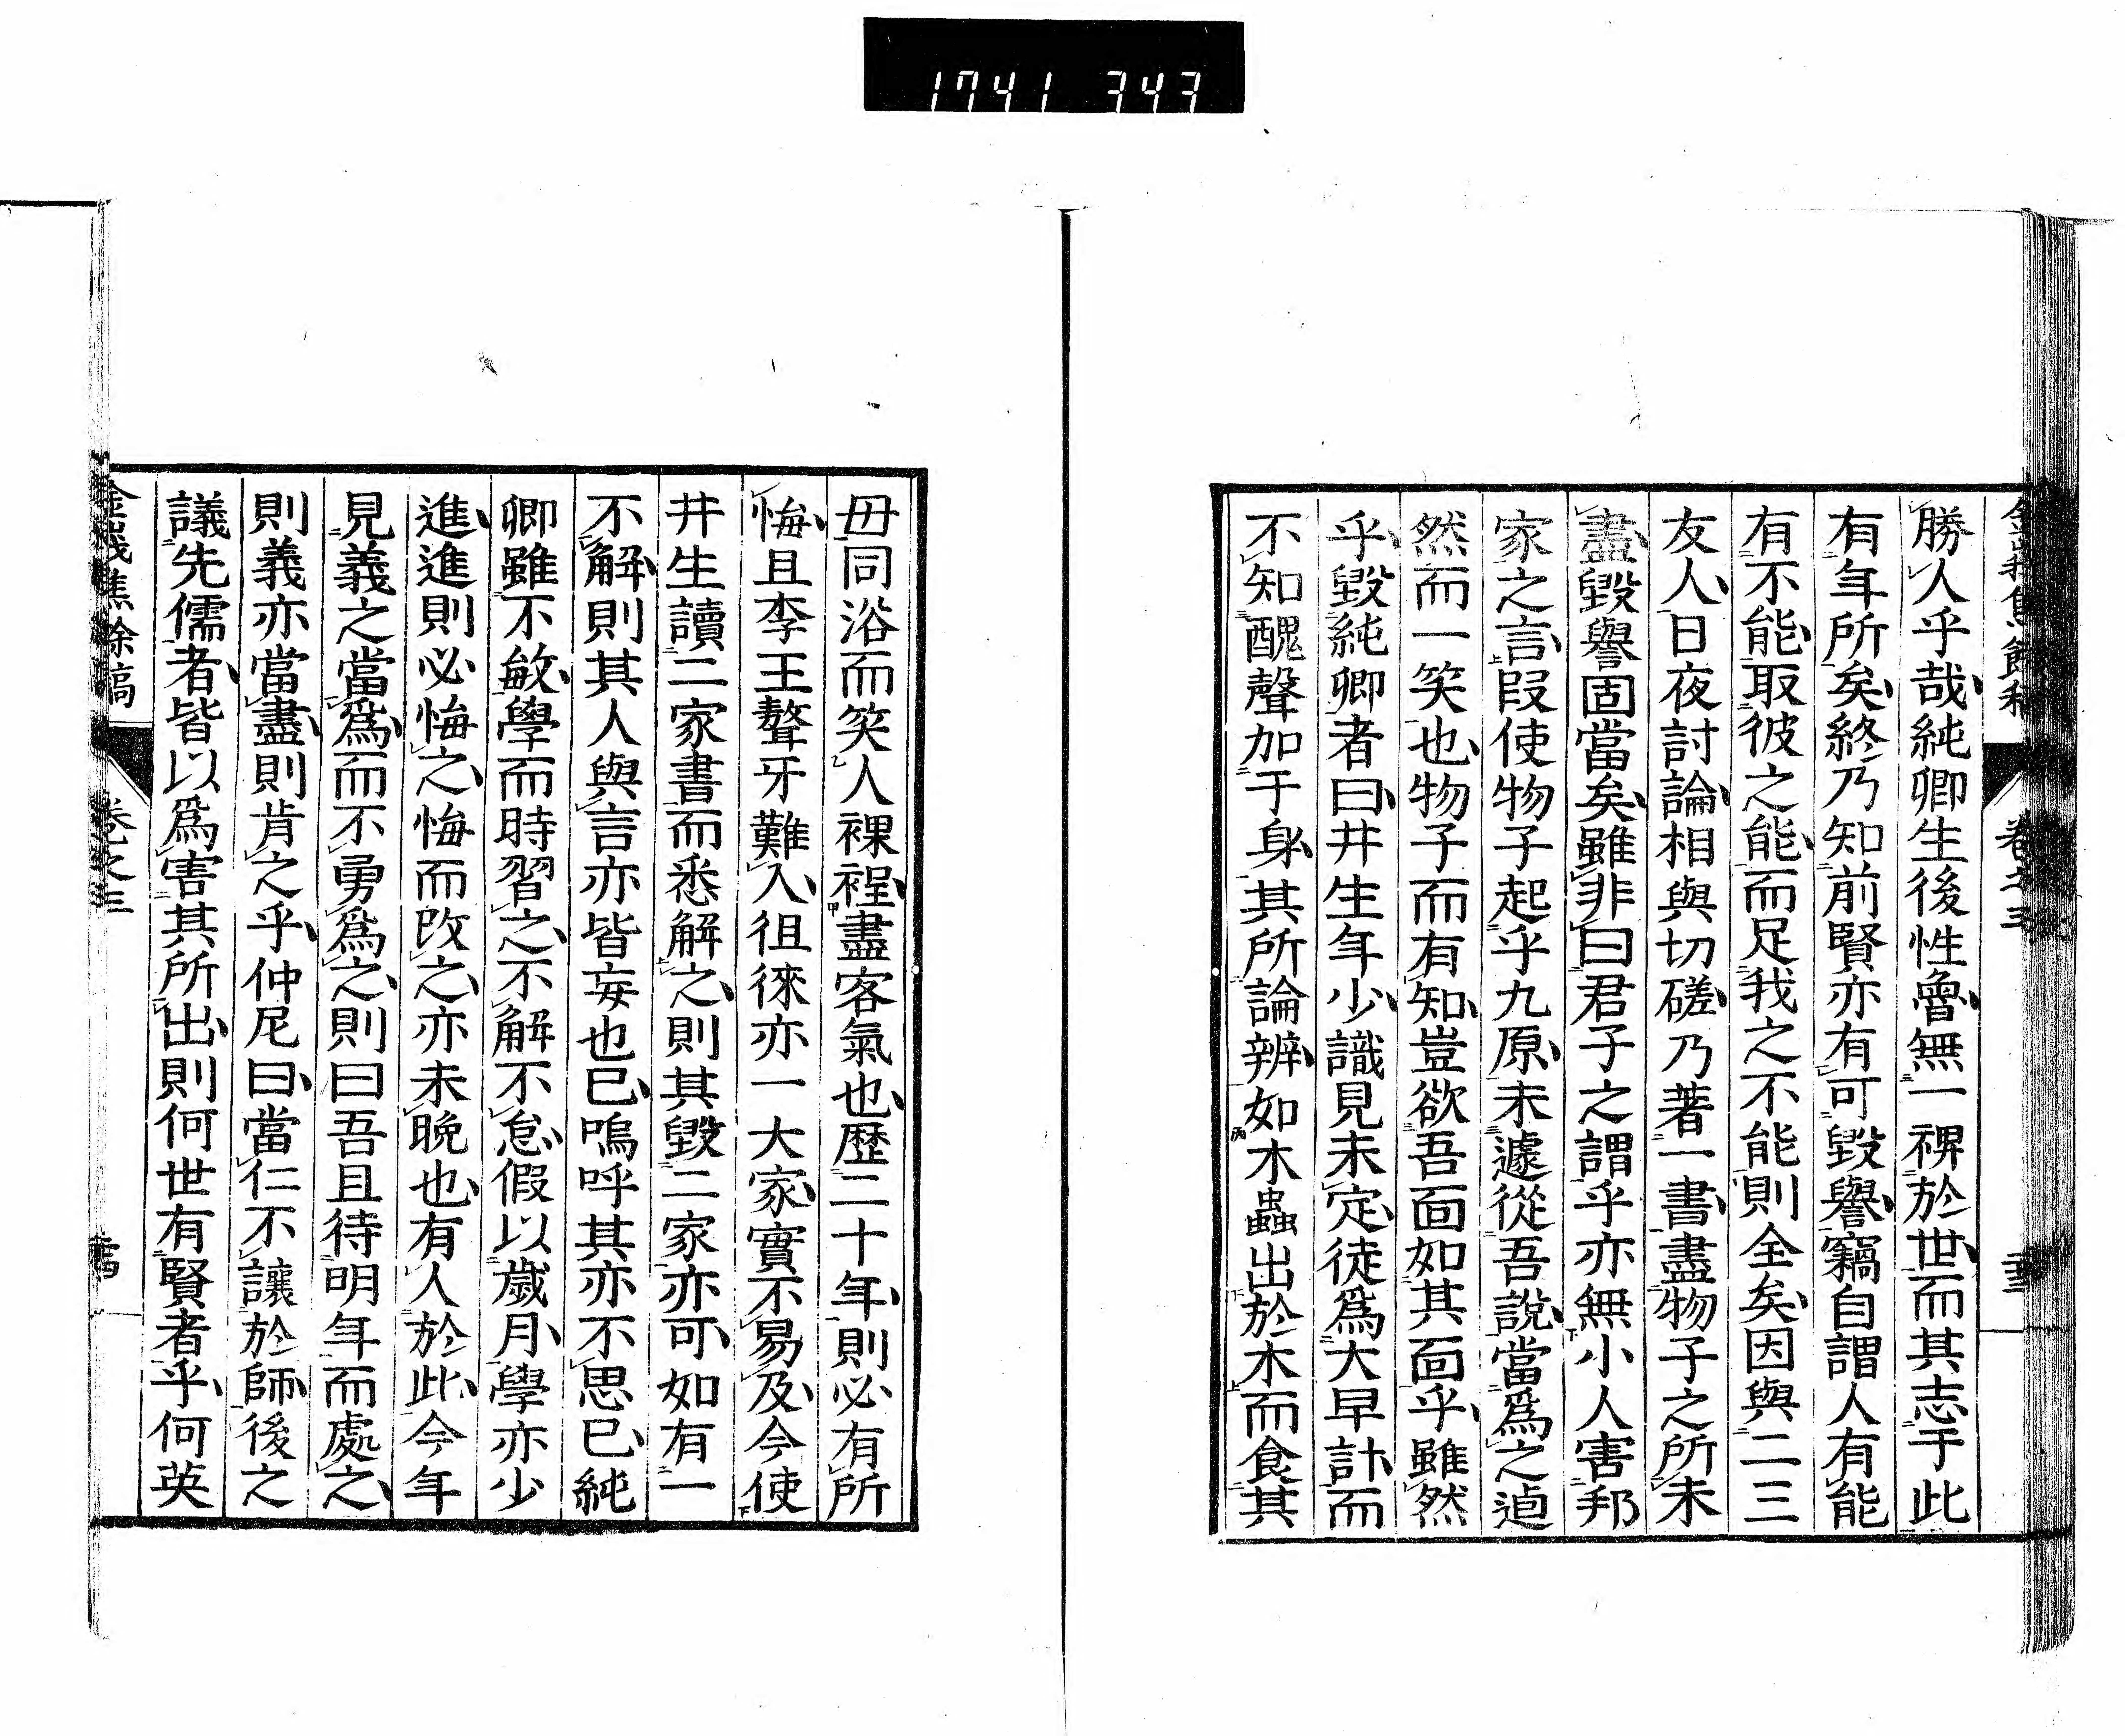 1741 343
勝人乎哉純卿生後性魯無一裨於世而其志于此
有年所矣終乃知前賢亦有可毀譽竊自謂人有能
有不能取彼之能而足我之不能則全矣因與二三
友人日夜討論相與切磋乃著一書盡物子之所未
盡毀譽固當矣雖非曰君子之謂乎亦無小人害邦
家之言叚使物子起乎九原未遽從吾說當爲之逌
然而一笑也物子而有知豈欲吾面如其面乎雖然
乎毀純卿者曰井生年少識見未定徒爲大早計而
不知醜聲加于身其所論辨如木蟲出於木而食其
卷之三
毋同浴而笑人裸裎盡客氣也歷二十年則必有所
悔且李王聱牙難入徂徠亦一大家實不易及今使
井生讀二家書而悉解之則其毀二家亦可如有一
不解則其人與言亦皆妄也已嗚呼其亦不思已純
卿雖不敏學而時習之不解不怠假以歲月學亦少
進進則必悔之悔而改之亦未晚也有人於此今年
見義之當爲而不勇爲之則曰吾且待明年而處之
則義亦當盡則肯之乎仲尼曰當仁不讓於師後之
議先儒者皆以爲害其所出則何世有賢者乎何英
金峨焦餘稿 卷之三